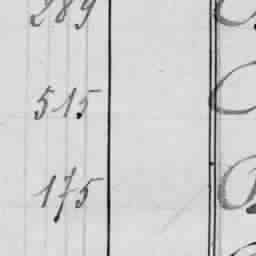 289
515
175